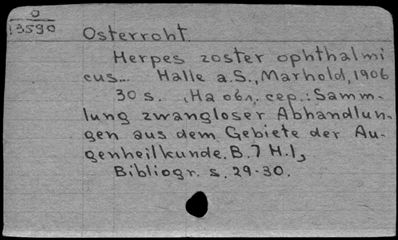 O
13590
Osterroht.
Herpes zoster ophthalmi
cus... Halle a.S., Marhold, 1906
30 s. , На обл. сер.: Samm-
lung zwangloser Abhandlun-
gen aus dem Gebiete der Au-
genheilkunde. B. 7 H. 1,
Bibliogr. s. 29-30.